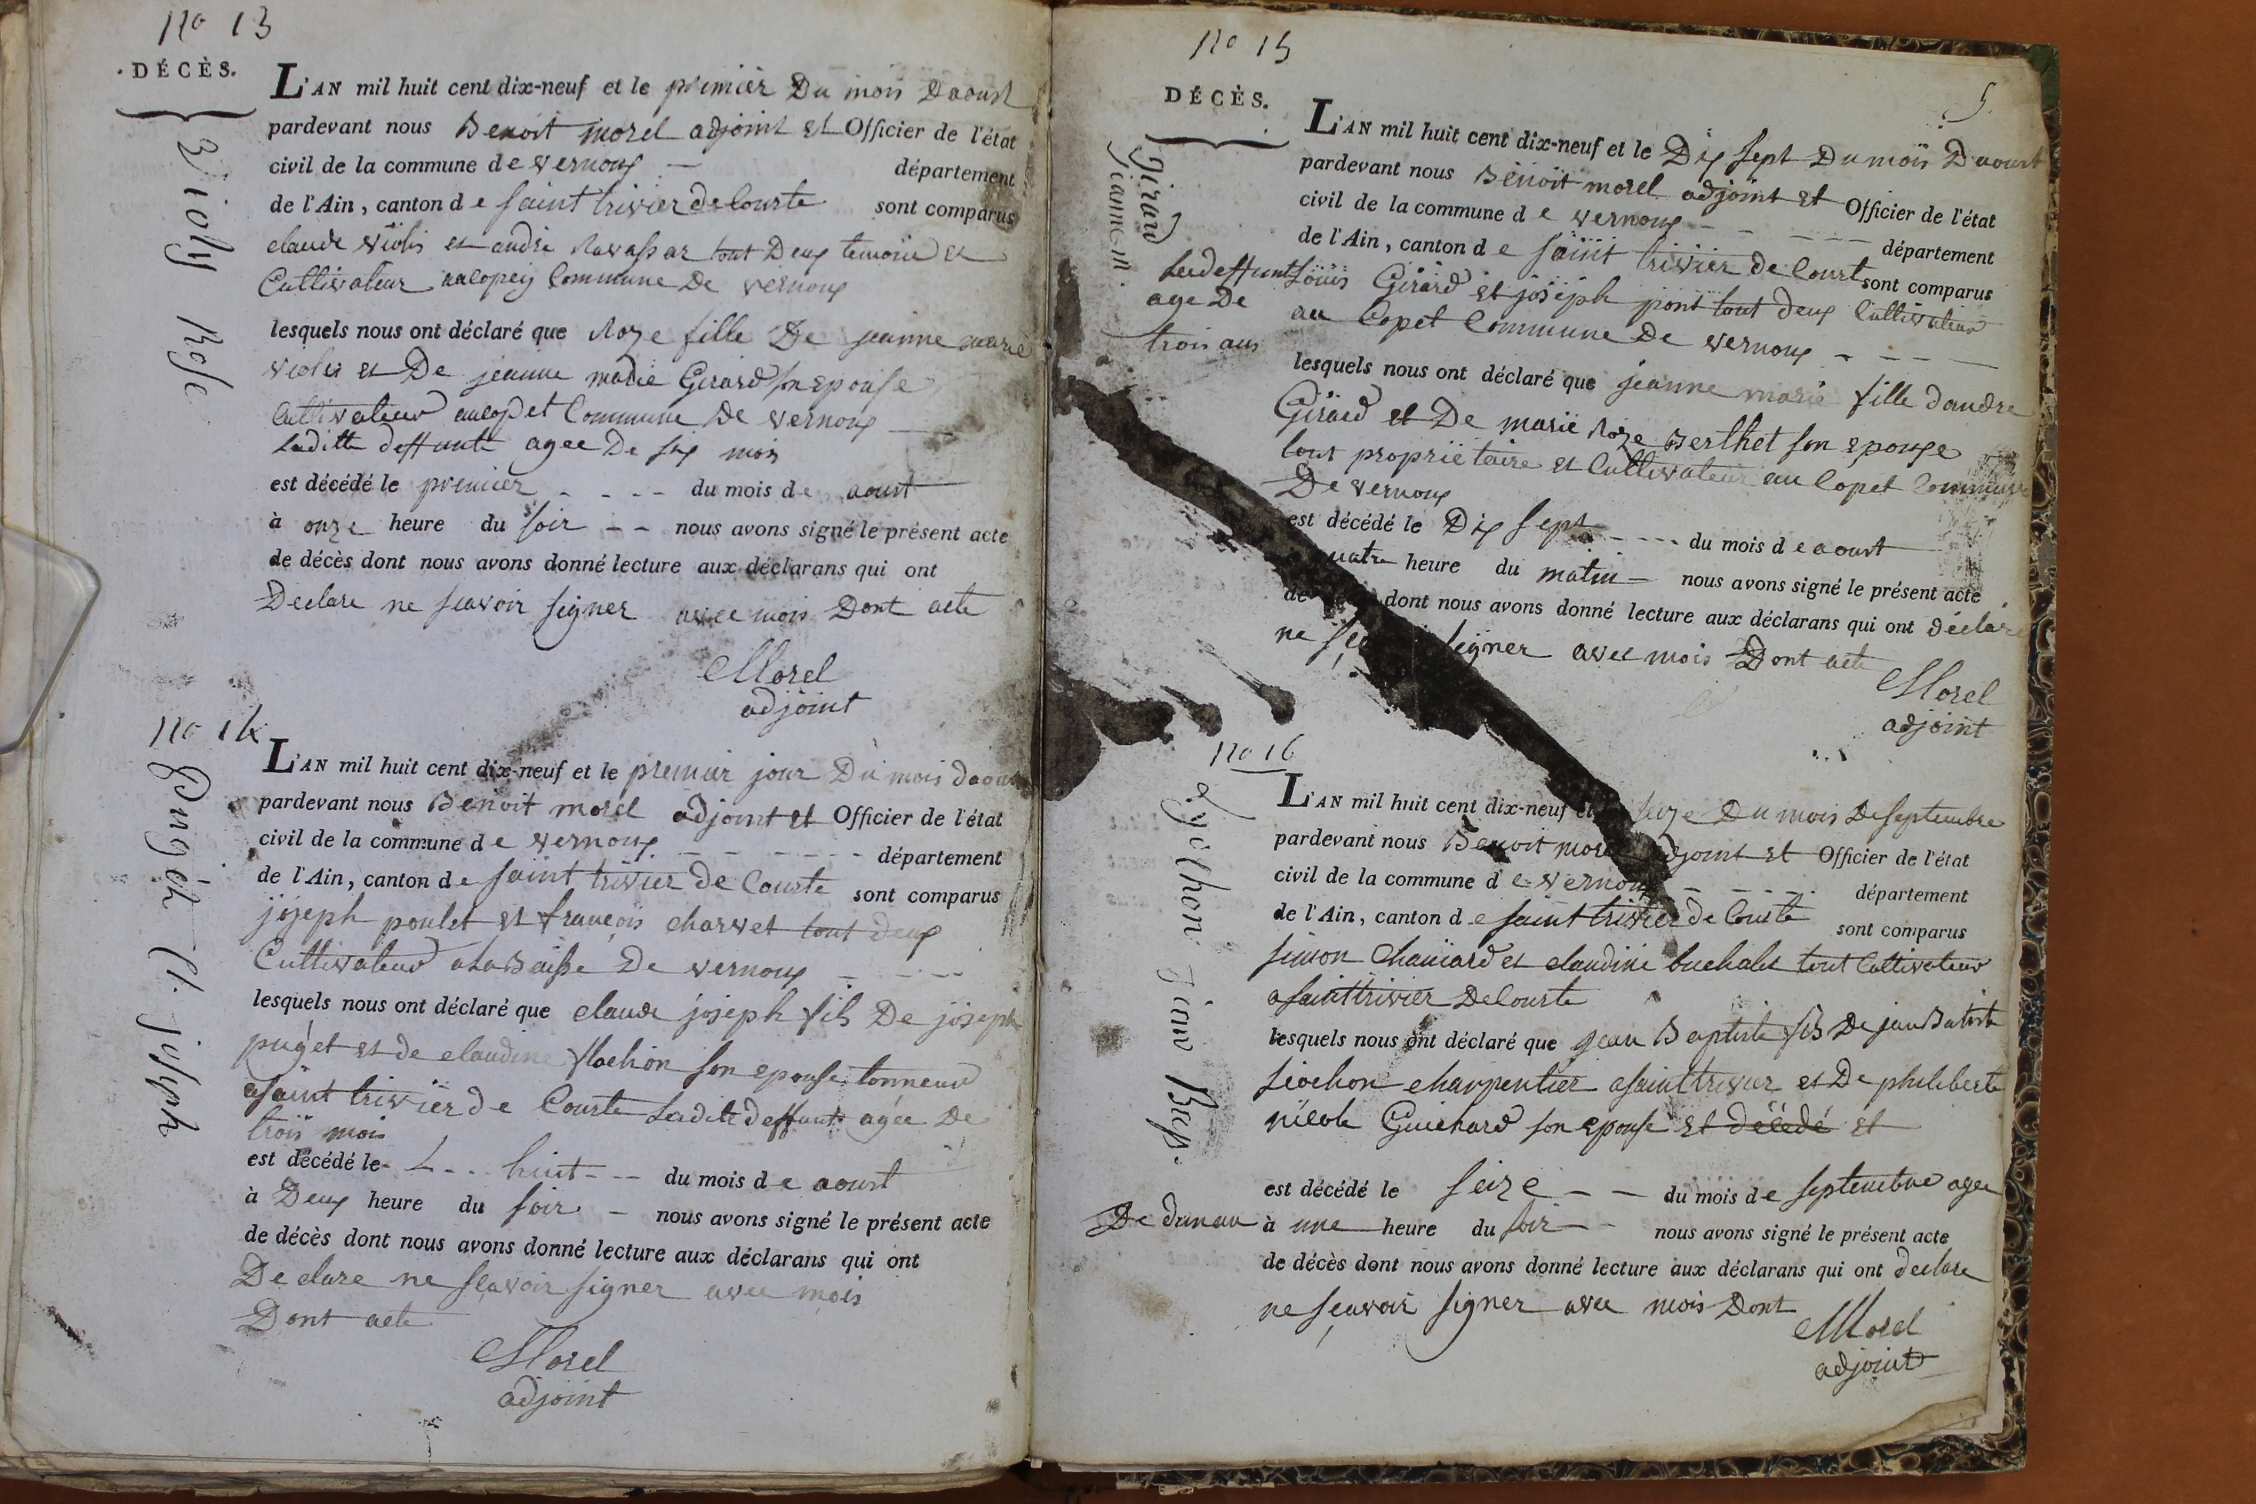 no 13
DÉCÈS.
Violy Rose
L'AN mil huit cent dix-neuf et le premier Du mois Daoust
pardevant nous Benoit morel adjoint et Officier de l'état
civil de la commune de vernoux département
de l'Ain, canton de saint trivier de Courte sont comparus
claude violis et andré Ravassar tout Deux temoin et
Cultivateur Commune De vernoux
lesquels nous ont déclaré que Roze fille De jeanne marie
violis et De jeanne marie Girard son epouse
Cultivateur aucopet Commune De vernoux
Laditte deffunte agee De six mois
est décédé le premier - - - - du mois de aoust
à onze heure du soir - - nous avons signé le présent acte
de décès dont nous avons donné lecture aux déclarans qui ont
Declare ne scavoir signer avec mois Dont acte
Morel
adjoint
no 14
Puget Cl. joseph
L'AN mil huit cent dix-neuf et le premier jour Du mois daoust
pardevant nous Benoit morel adjoint et Officier de l'état
civil de la commune de vernoux - - - - - département
de l'Ain, canton de saint trivier De Courte sont comparus
joseph poulet et françois charvet tout deux
Cultivateur ala Baisse De vernoux - - - -
lesquels nous ont déclaré que claude joseph fils De joseph
puget et de claudine flochon son epouse tonneur
asaint trivier de Courte Ledit deffunt agée De
trois mois
est décédé le - L - - huit - - - du mois de aoust
à Deux heure du soir - nous avons signé le présent acte
de décès dont nous avons donné lecture aux déclarans qui ont
De clare ne sçavoir signer avec mois
Dont acte
Morel
adjoint
no 15
5
DÉCÈS.
Girard
jeanne m.
L'AN mil huit cent dix-neuf et le Dix sept Du mois Daoust
pardevant nous Benoit morel adjoint et Officier de l'état
civil de la commune de vernoux - - - - - département
de l'Ain, canton de saint trivier de Court sont comparus
Ledeffunt Louis Girard et joseph pont tout deux Cultivateur
age De au Copet Commune De vernoux - - - -
trois ans
lesquels nous ont déclaré que jeanne marie fille dandre
Girard et De marie Roze Berthet son epouse
tout proprietaire et Cultivateur au Copet Commune
De vernoux
est décédé le Dix sept - - - - du mois de aoust
uatre heure du matin - nous avons signé le présent acte
de dont nous avons donné lecture aux déclarans qui ont déclaré
ne sça signer avec mois Dont acte
Morel
adjoint
no 16
jean Bap.
L'AN mil huit cent dix-neuf et seize Du mois Deseptembre
pardevant nous Benoit morel adjoint et Officier de l'état
civil de la commune de vernoux - - - - département
de l'Ain, canton de saint trivier de Courte sont comparus
simon Chanard et claudine buchalet tout Cultivateur
asaint trivier DeCourte
lesquels nous ont déclaré que jean Baptiste fils De jean Batiste
charpentier asaint trivier et De philiberte
nicole Guichard son epouse et décédé et
est décédé le seize - - du mois de septembre agee
De dun an à une heure du soir - - nous avons signé le présent acte
de décès dont nous avons donné lecture aux déclarans qui ont declare
ne sçavoir signer avec mois Dont
Morel
adjoint